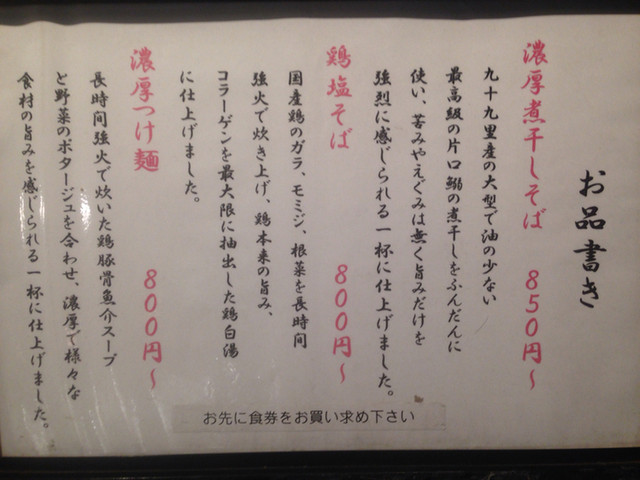 お品書き
濃厚煮干しそば 850円~
九十九里産の大型で油の少ない
最高級の片口鰯の煮干しをふんだんに
使い、苦みやえぐみは無く旨みだけを
強烈に感じられる一杯に仕上げました。
鶏塩そば 800円~
国産鶏のガラ、モミジ、根菜を長時間
強火で炊き上げ、鶏本来の旨み、
コラーゲンを最大限に抽出した鶏白湯
に仕上げました。
濃厚つけ麺 800円~
長時間強火で炊いた鶏豚骨魚介スープ
と野菜のポタージュを合わせ、濃厚で様々な
食材の旨みを感じられる一杯に仕上げました。
お先に食券をお買い求め下さい